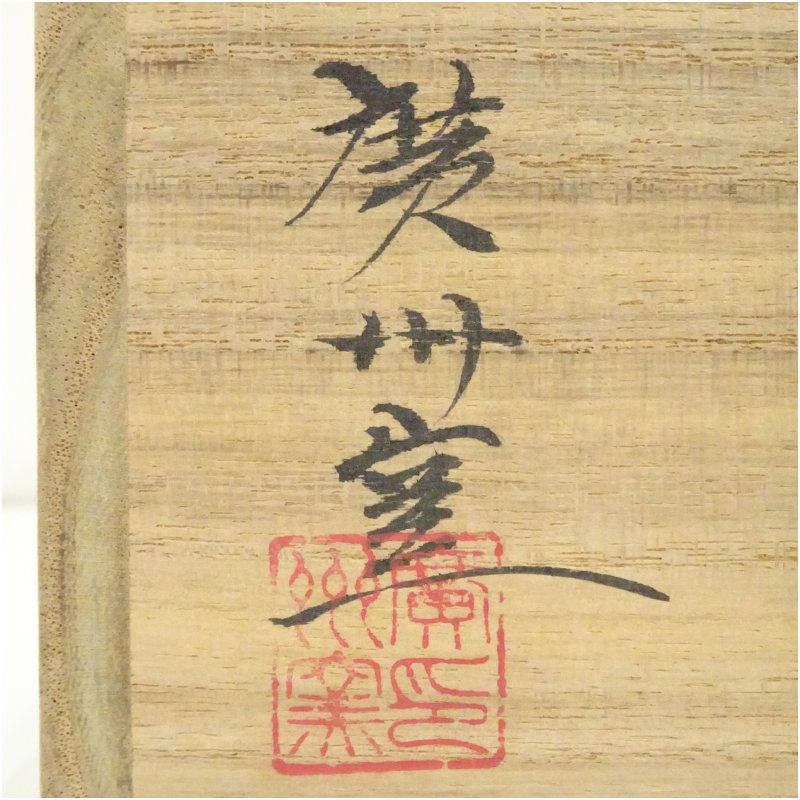 廣州窯
廣州窯印